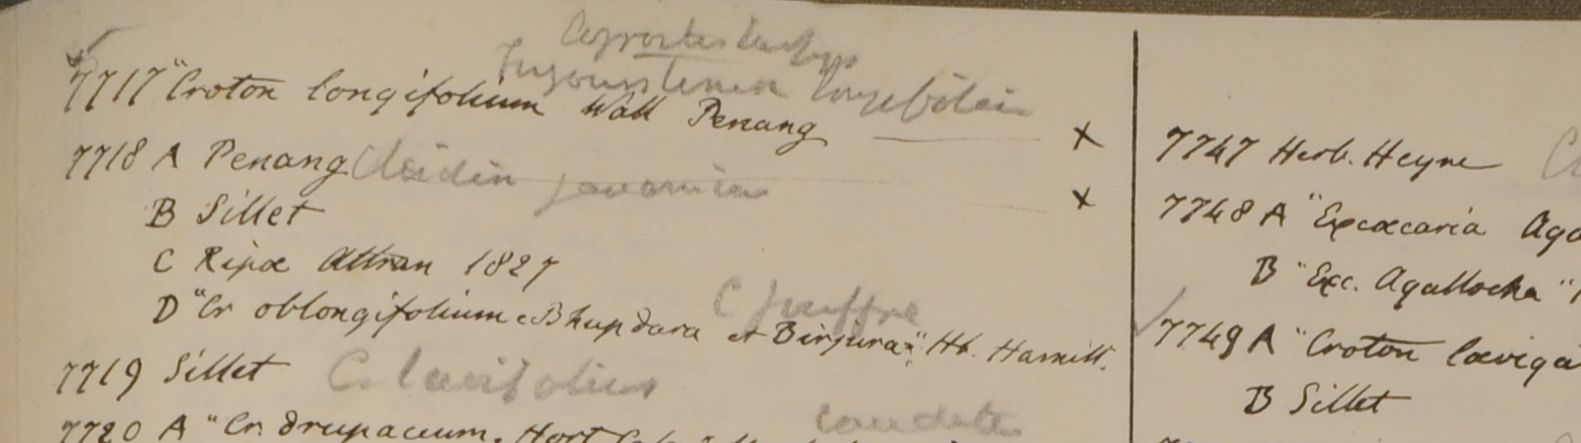 longifolia
7717 "Croton longifolium Wall Penang x
7718 A Penang javanica
B Sillet x
C Ripae Attran 1827
D "Cr oblongifolium Bhupdara et Birjura" Hb. Hamilt.
7719 Sillet C. laevifolius
caudata
7720 A "Cr. drupaceum. Hort
7747 Herb. Heyne
7748 A "Excaecaria Aga
B "Exc. Agallocha"
7749 A "Croton laeviga
B Sillet